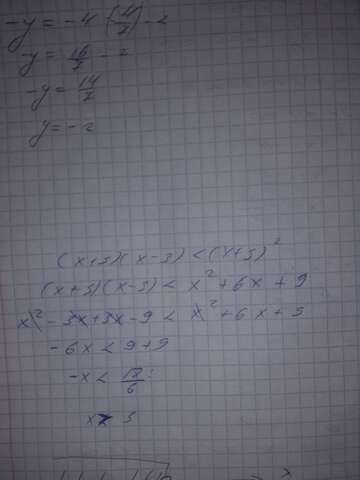 -y = -4 · (4/7) - 2
-y = 16/7 - 2
-y = 14/7
y = -2
(x+3)(x-3) < (x+3)²
(x+3)(x-3) < x² + 6x + 9
x² - 3x + 3x - 9 < x² + 6x + 9
-6x < 9 + 9
-x < 18/6
x > 3